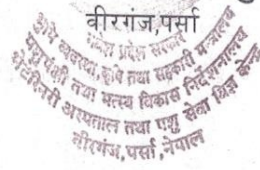 वीरगंज,पर्सा
मधेश प्रदेश सरकार
भूमि व्यवस्था,कृषि तथा सहकारी मन्त्रालय
पशुपंछी तथा मत्स्य विकास निर्देशनालय
भेटेरीनरी अस्पताल तथा पशु सेवा विज्ञ केन्द्र
वीरगंज,पर्सा,नेपाल